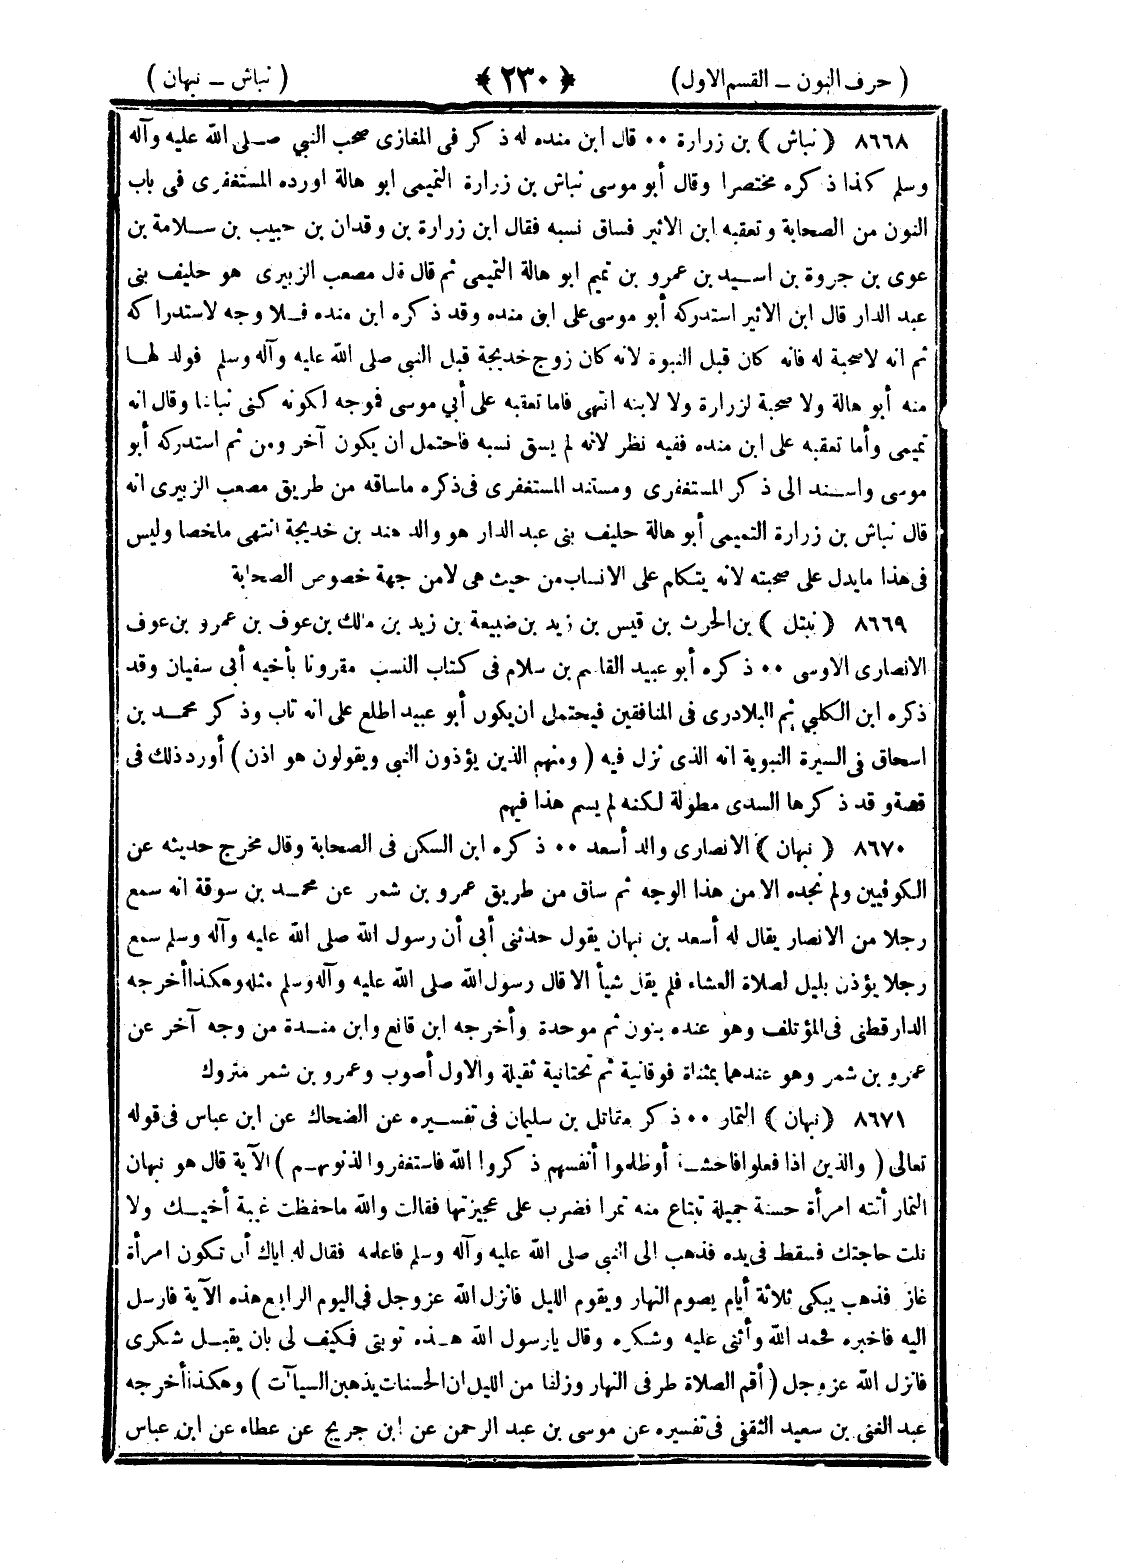 ( حرف النون ــ القسم الاول ) ﴿ ٢٣٠ ﴾ ( نباش ــ نبهان )
٨٦٦٨ ( نباش ) بن زرارة ٠٠ قال ابن منده له ذكر فى المغازى صحب النبي صلى الله عليه وآله
وسلم كذا ذكره مختصرا وقال أبو موسى نباش بن زرارة التميمى ابو هالة اورده المستغفرى فى باب
النون من الصحابة وتعقبه ابن الاثير فساق نسبه فقال ابن زرارة بن وقدان بن حبيب بن سلامة بن
عوى بن جروة بن اسيد بن عمرو بن تميم ابو هالة التميمى ثم قال قال مصعب الزبيرى هو حليف بنى
عبد الدار قال ابن الاثير استدركه أبو موسى على ابن منده وقد ذكره ابن منده فلا وجه لاستدراكه
ثم انه لا صحبة له فانه كان قبل النبوة لانه كان زوج خديجة قبل النبي صلى الله عليه وآله وسلم فولد لها
منه أبو هالة ولا صحبة لزرارة ولا لابنه انتهى فاما تعقبه على أبي موسى فموجه لكونه كنى نباشا وقال انه
تميمى وأما تعقبه على ابن منده ففيه نظر لانه لم يسق نسبه فاحتمل ان يكون آخر ومن ثم استدركه أبو
موسى واستند الى ذكر المستغفرى ومستند المستغفرى فى ذكره ماساقه من طريق مصعب الزبيرى انه
قال نباش بن زرارة التميمى أبو هالة حليف بنى عبد الدار هو والد هند بن خديجة انتهى ملخصا وليس
فى هذا مايدل على صحبته لانه يتكلم على الانساب من حيث هى لا من جهة خصوص الصحابة
٨٦٦٩ ( نبتل ) بن الحرث بن قيس بن زيد بن ضبيعة بن زيد بن مالك بن عوف بن عمرو بن عوف
الانصارى الاوسى ٠٠ ذكره أبو عبيد القاسم بن سلام فى كتاب النسب مقرونا بأخيه أبى سفيان وقد
ذكره ابن الكلبي ثم البلاذرى فى المنافقين فيحتمل ان يكون أبو عبيد اطلع على انه تاب وذكر محمد بن
اسحاق فى السيرة النبوية انه الذى نزل فيه ( ومنهم الذين يؤذون النبى ويقولون هو اذن ) أورد ذلك فى
قصة وقد ذكرها السدى مطولة لكنه لم يسم هذا فيهم
٨٦٧٠ ( نبهان ) الانصارى والد أسعد ٠٠ ذكره ابن السكن فى الصحابة وقال مخرج حديثه عن
الكوفيين ولم نجده الا من هذا الوجه ثم ساق من طريق عمرو بن شمر عن محمد بن سوقة انه سمع
رجلا من الانصار يقال له أسعد بن نبهان يقول حدثنى أبى أن رسول الله صلى الله عليه وآله وسلم سمع
رجلا يؤذن بليل لصلاة العشاء فلم يقل شيأ الا قال رسول الله صلى الله عليه وآله وسلم مثله وهكذا أخرجه
الدارقطنى فى المؤتلف وهو عنده بنون ثم موحدة وأخرجه ابن قانع وابن مندة من وجه آخر عن
عمرو بن شمر وهو عندهما بمثناة فوقانية ثم تحتانية ثقيلة والاول أصوب وعمرو بن شمر متروك
٨٦٧١ ( نبهان ) التمار ٠٠ ذكر مقاتل بن سليمان فى تفسيره عن الضحاك عن ابن عباس فى قوله
تعالى ( والذين اذا فعلوا فاحشة أو ظلموا أنفسهم ذكروا الله فاستغفروا لذنوبهم ) الآية قال هو نبهان
التمار أتته امرأة حسنة جميلة تبتاع منه تمرا فضرب على عجيزتها فقالت والله ماحفظت غيبة أخيك ولا
نلت حاجتك فسقط فى يده فذهب الى النبى صلى الله عليه وآله وسلم فاعلمه فقال له اياك أن تكون امرأة
غاز فذهب يبكى ثلاثة أيام يصوم النهار ويقوم الليل فانزل الله عز وجل فى اليوم الرابع هذه الآية فارسل
اليه فاخبره فحمد الله وأثنى عليه وشكره وقال يارسول الله هذه توبتى فكيف لى بان يقبل شكرى
فانزل الله عز وجل ( أقم الصلاة طرفى النهار وزلفا من الليل ان الحسنات يذهبن السيآت ) وهكذا أخرجه
عبد الغنى بن سعيد الثقفى فى تفسيره عن موسى بن عبد الرحمن عن ابن جريج عن عطاء عن ابن عباس